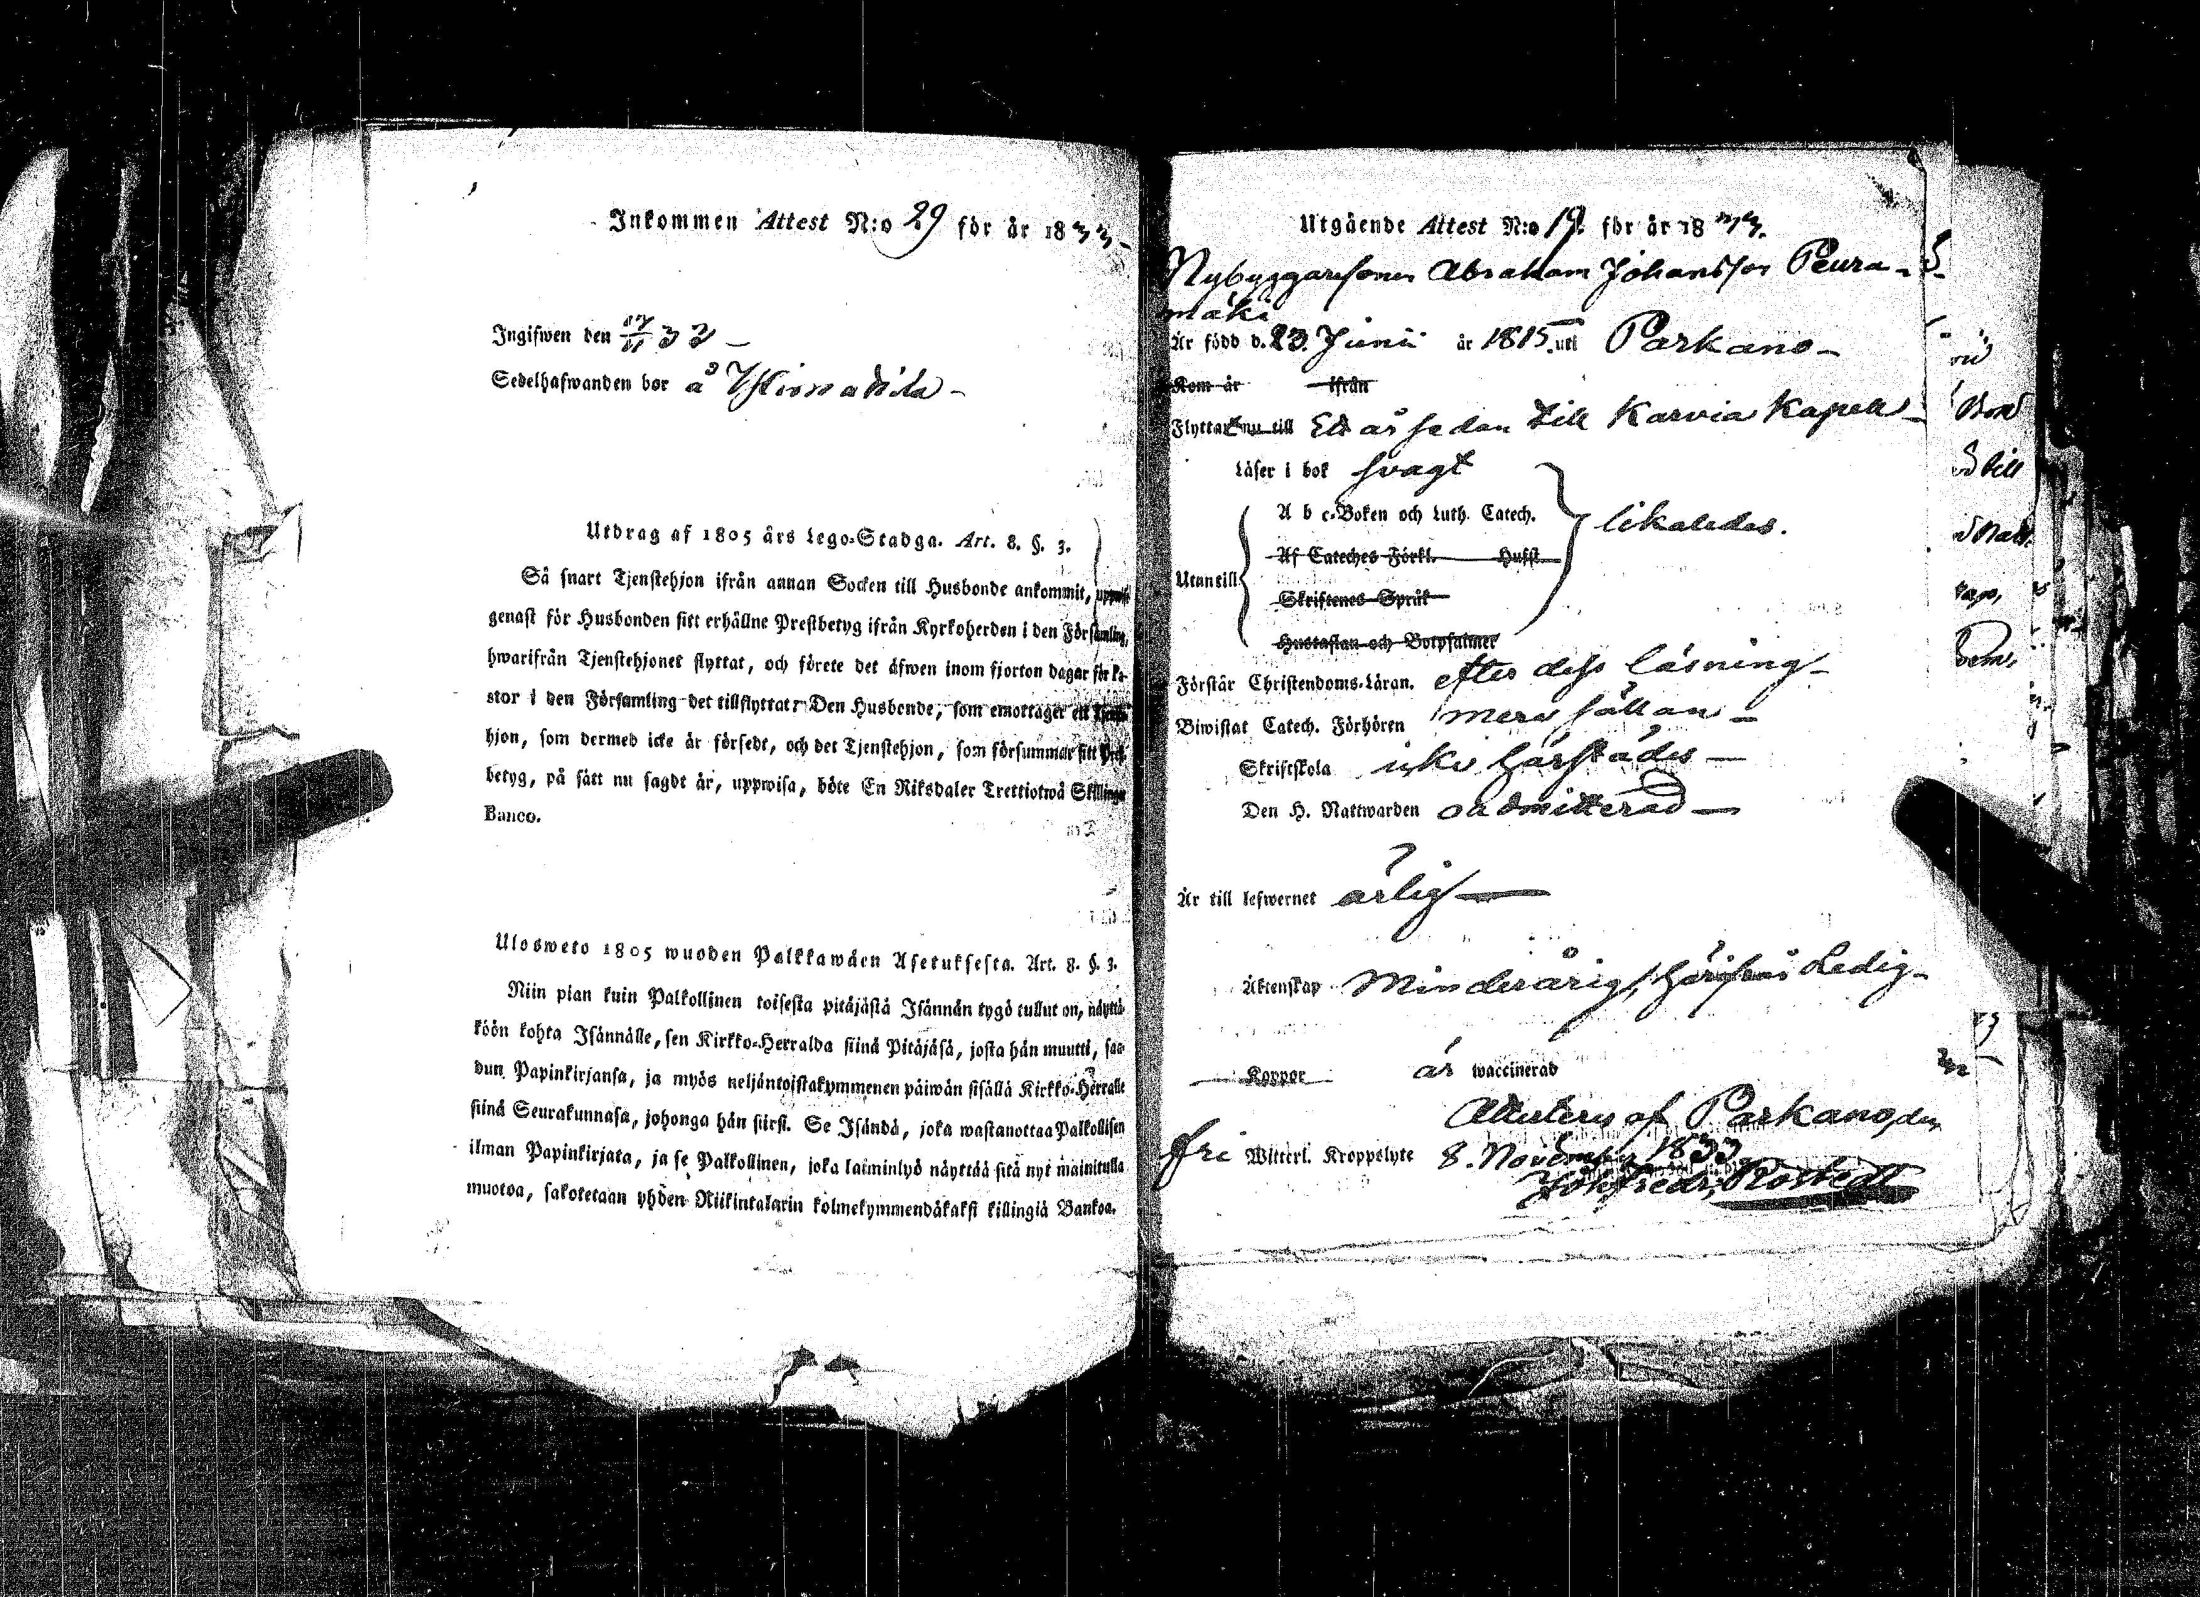 Inkommen Attest N:o 29 för år 1833 –
Ingifwen den 17/11 33 –
Sedelhafwanden bor å
Utdrag af 1805 års Lego-Stadga. Art. 8. §. 3.
Så snart Tjenstehjon ifrån annan Socken till Husbonde ankommit, uppwise
genast för Husbonden sitt erhållne Prestbetyg ifrån Kyrkoherden i den Församling,
hwarifrån Tjenstehjonet flyttat, och förete det äfwen inom fjorton dagar för Pa-
stor i den Församling det tillflyttat: Den Husbonde, som emottager ett Tjenste-
hjon, som dermed icke är försedt, och det Tjenstehjon, som försummar sitt Prest-
betyg, på sätt nu sagdt är, uppwisa, böte En Riksdaler Trettiotwå Skillingar
Banco.
Ulosweto 1805 wuoden Palkkawäen Asetuksesta. Art. 8. §. 3.
Niin pian kuin Palkollinen toisesta pitäjästä Isännän tygö tullut on, näyttä-
köön kohta Isännälle, sen Kirkko-Herralda siinä Pitäjäsä, josta hän muutti, saa-
dun Papinkirjansa, ja myös neljäntoistakymmenen päiwän sisällä Kirkko-Herralle
siinä Seurakunnasa, johonga hän siirsi. Se Isändä, joka wastanottaa Palkollisen
ilman Papinkirjata, ja se Palkollinen, joka laiminlyö näyttää sitä nyt mainitulla
muotoa, sakotetaan yhden Riikintalarin kolmekymmendäkaksi killingiä Bankoa.
Utgående Attest N:o 19. för år 1833.
Nybyggaresonen Abraham Johansson Peura-
mäki
Är född d. 23. Junii år 1815. uti Parkano –
Kom år ifrån
Flyttat nu till Ett år sedan till Karvia Kapell –
Läser i bok svagt
A b c-Boken och Luth. Catech. likaledes.
Af Cateches Förkl. Husfl.
Utantill
Skriftenes Språk
Hustaflan och Botpsalmer
Förstår Christendoms-Läran. efter dess läsning –
Biwistat Catech. Förhören mera sällan –
Skriftskola icke härstädes –
Den H. Nattwarden oadmitterad –
Är till lefwernet ärlig –
Äktenskap Minderårig, härifrån Ledig –
Koppor är waccinerad
Attesteras af Parkano, den
fri Witterl. Kroppslyte 8. November 1833
Joh. Fredr. Rostedt